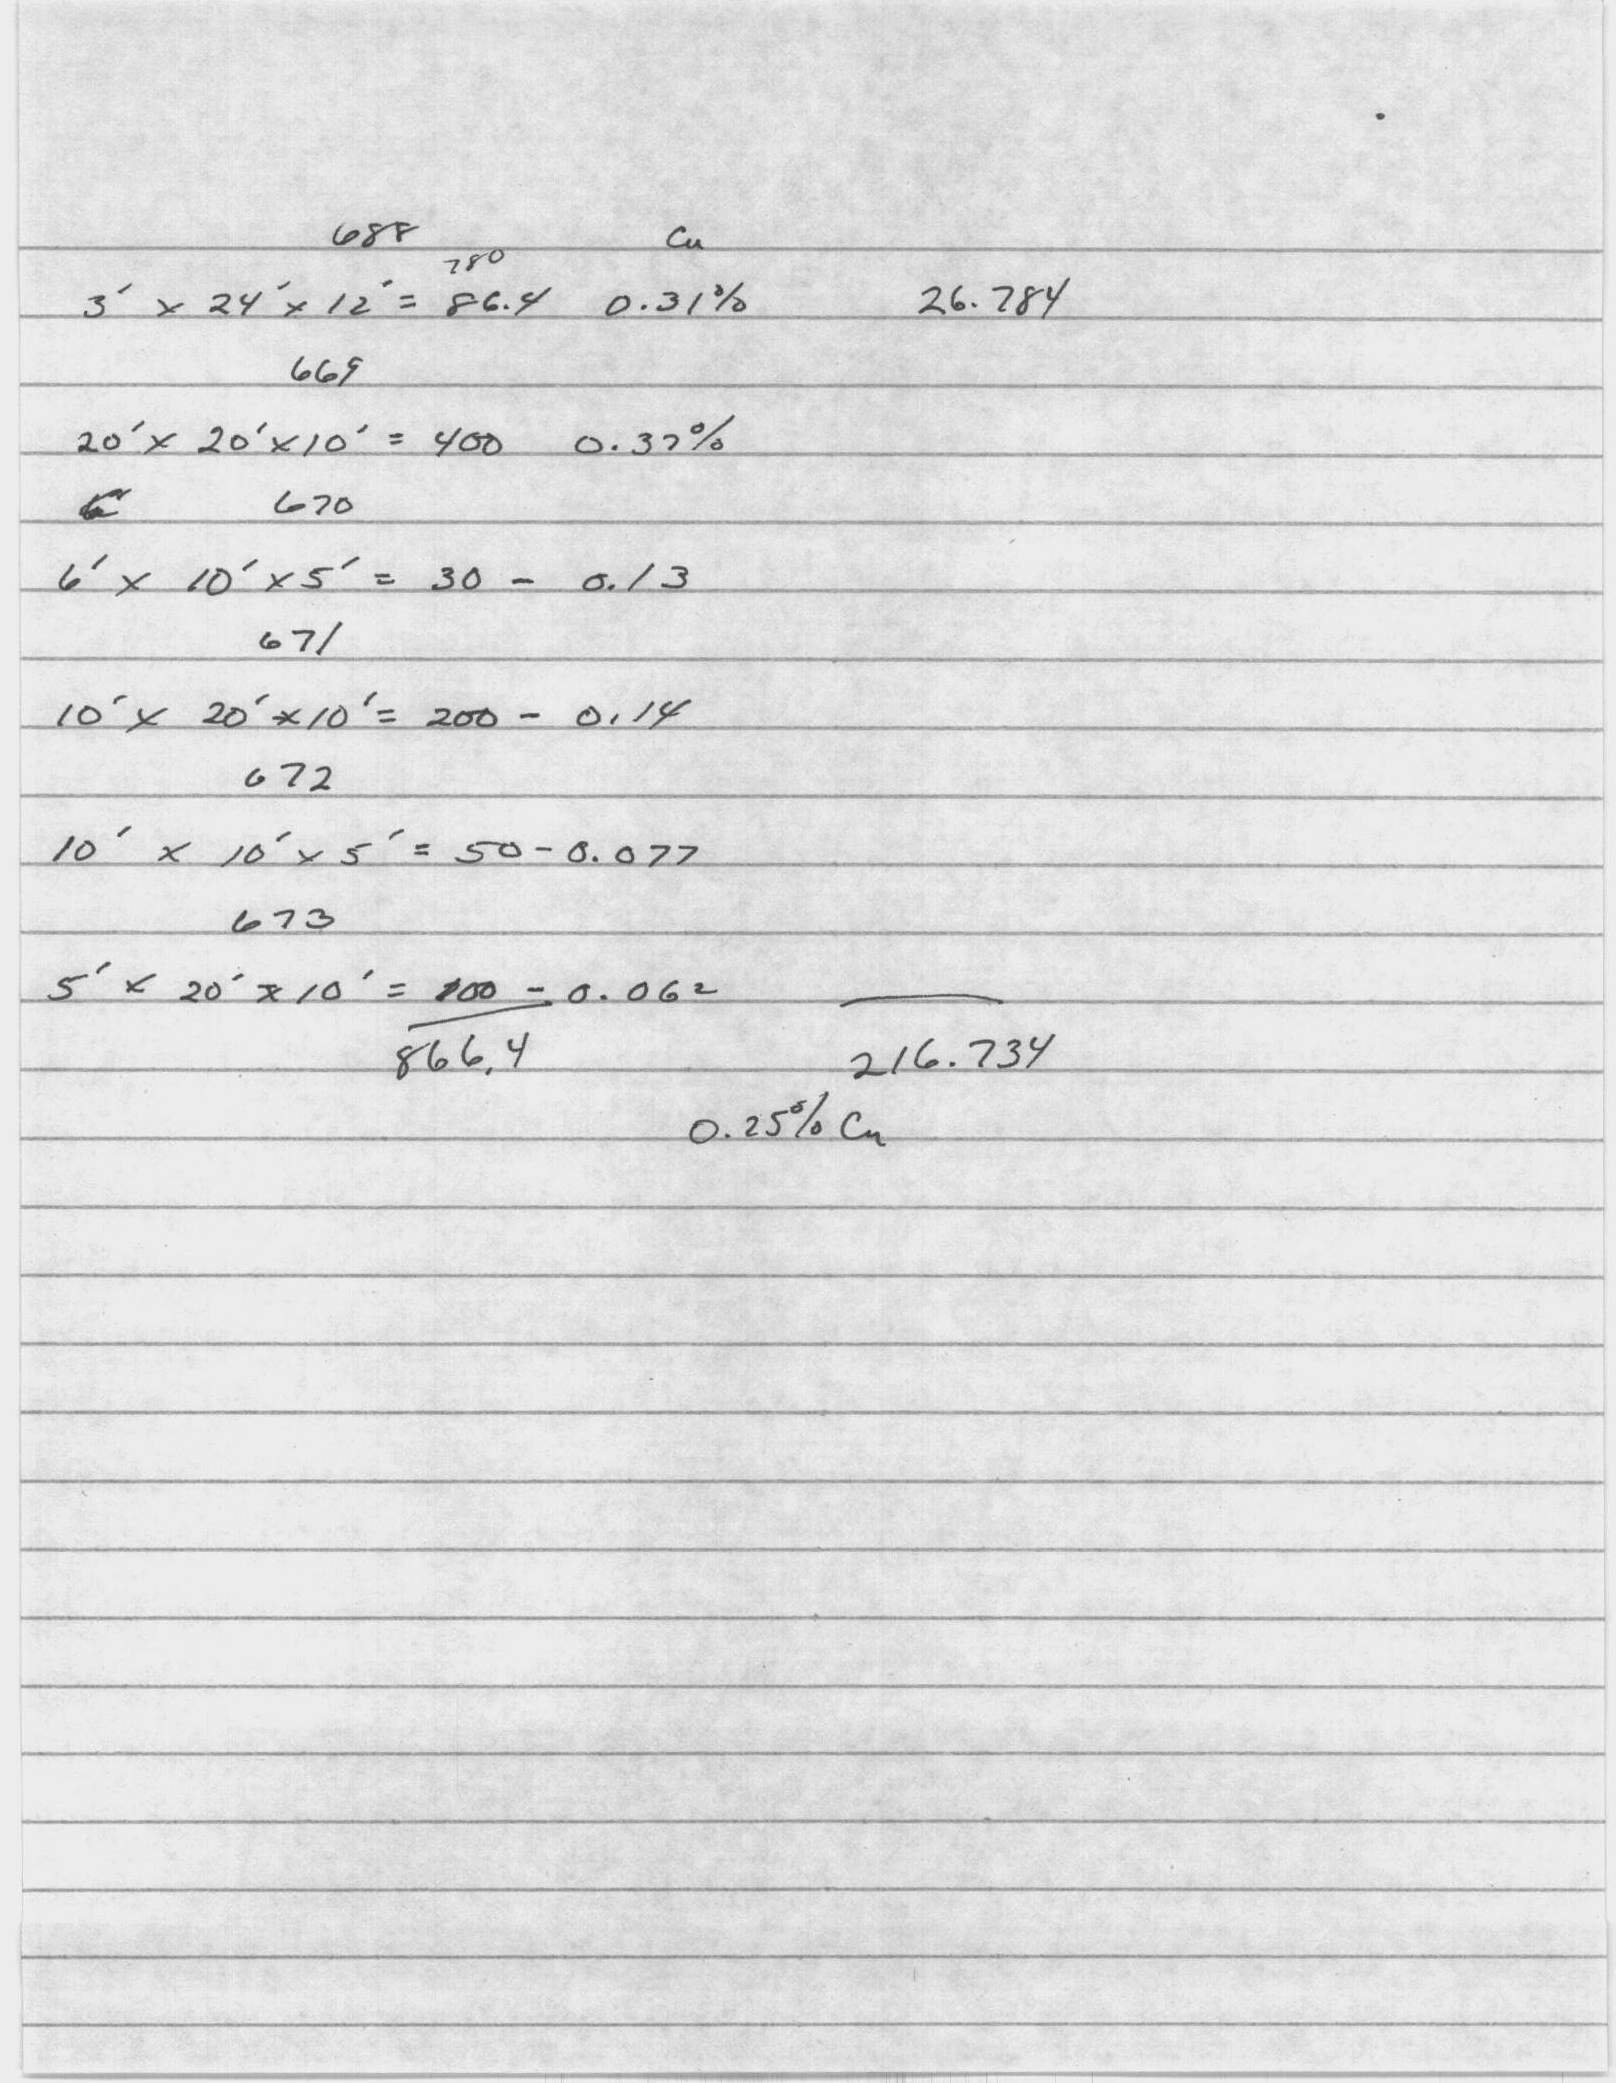 688 Cu
780
3' x 24' x 12' = 86.4 0.31% 26.784
669
20' x 20' x 10' = 400 0.37%
670
6' x 10' x 5' = 30 - 0.13
671
10' x 20' x 10' = 200 - 0.14
672
10' x 10' x 5' = 50 - 0.077
673
5' x 20' x 10' = 100 - 0.062
866.4 216.734
0.25% Cu